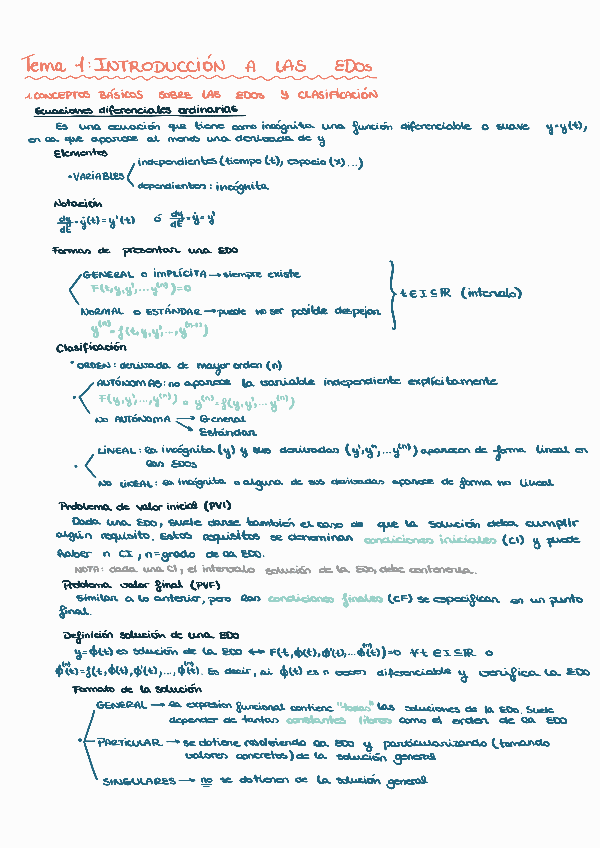 Tema 1: INTRODUCCIÓN A LAS EDOs
1. CONCEPTOS BÁSICOS SOBRE LAS EDOs Y CLASIFICACIÓN
Ecuaciones diferenciales ordinarias
Es una ecuación que tiene como incógnita una función diferenciable o suave y=y(t),
en la que aparece al menos una derivada de y
Elementos
• VARIABLES
independientes (tiempo (t), espacio (x)...)
dependientes: incógnita
Notación
dy/dt = ẏ(t) = y'(t) ó dy/dt = ẏ = y'
Formas de presentar una EDO
GENERAL o IMPLÍCITA → siempre existe
F(t,y,y',...y⁽ⁿ⁾)=0
NORMAL o ESTÁNDAR → puede no ser posible despejar
y⁽ⁿ⁾=f(t,y,y',...,y⁽ⁿ⁻¹⁾)
t ∈ I ⊆ ℝ (intervalo)
Clasificación
• ORDEN: derivada de mayor orden (n)
• AUTÓNOMAS: no aparece la variable independiente explícitamente
F(y,y',...,y⁽ⁿ⁾) o y⁽ⁿ⁾=f(y,y',...y⁽ⁿ⁾)
NO AUTÓNOMA → General
→ Estándar
• LINEAL: la incógnita (y) y sus derivadas (y',y'',...y⁽ⁿ⁾) aparecen de forma lineal en
las EDOs
NO LINEAL: la incógnita o alguna de sus derivadas aparece de forma no lineal
Problema de valor inicial (PVI)
Dada una EDO, suele darse también el caso de que la solución deba cumplir
algún requisito. Estos requisitos se denominan condiciones iniciales (CI) y puede
haber n CI, n=grado de la EDO.
NOTA: dada una CI, el intervalo solución de la EDO, debe contenerla.
Problema valor final (PVF)
Similar a lo anterior, pero las condiciones finales (CF) se especifican en un punto
final.
Definición solución de una EDO
y=ϕ(t) es solución de la EDO ↔ F(t,ϕ(t),ϕ'(t),...ϕ⁽ⁿ⁾(t))=0 ∀t ∈ I ⊆ ℝ o
ϕ⁽ⁿ⁾(t)=f(t,ϕ(t),ϕ'(t),...,ϕ⁽ⁿ⁾(t). Es decir, si ϕ(t) es n veces diferenciable y verifica la EDO
Formato de la solución
• GENERAL → la expresión funcional contiene "todas" las soluciones de la EDO. Suele
depender de tantas constantes libres como el orden de la EDO
PARTICULAR → se obtiene resolviendo la EDO y particularizando (tomando
valores concretos) de la solución general
SINGULARES → no se obtienen de la solución general